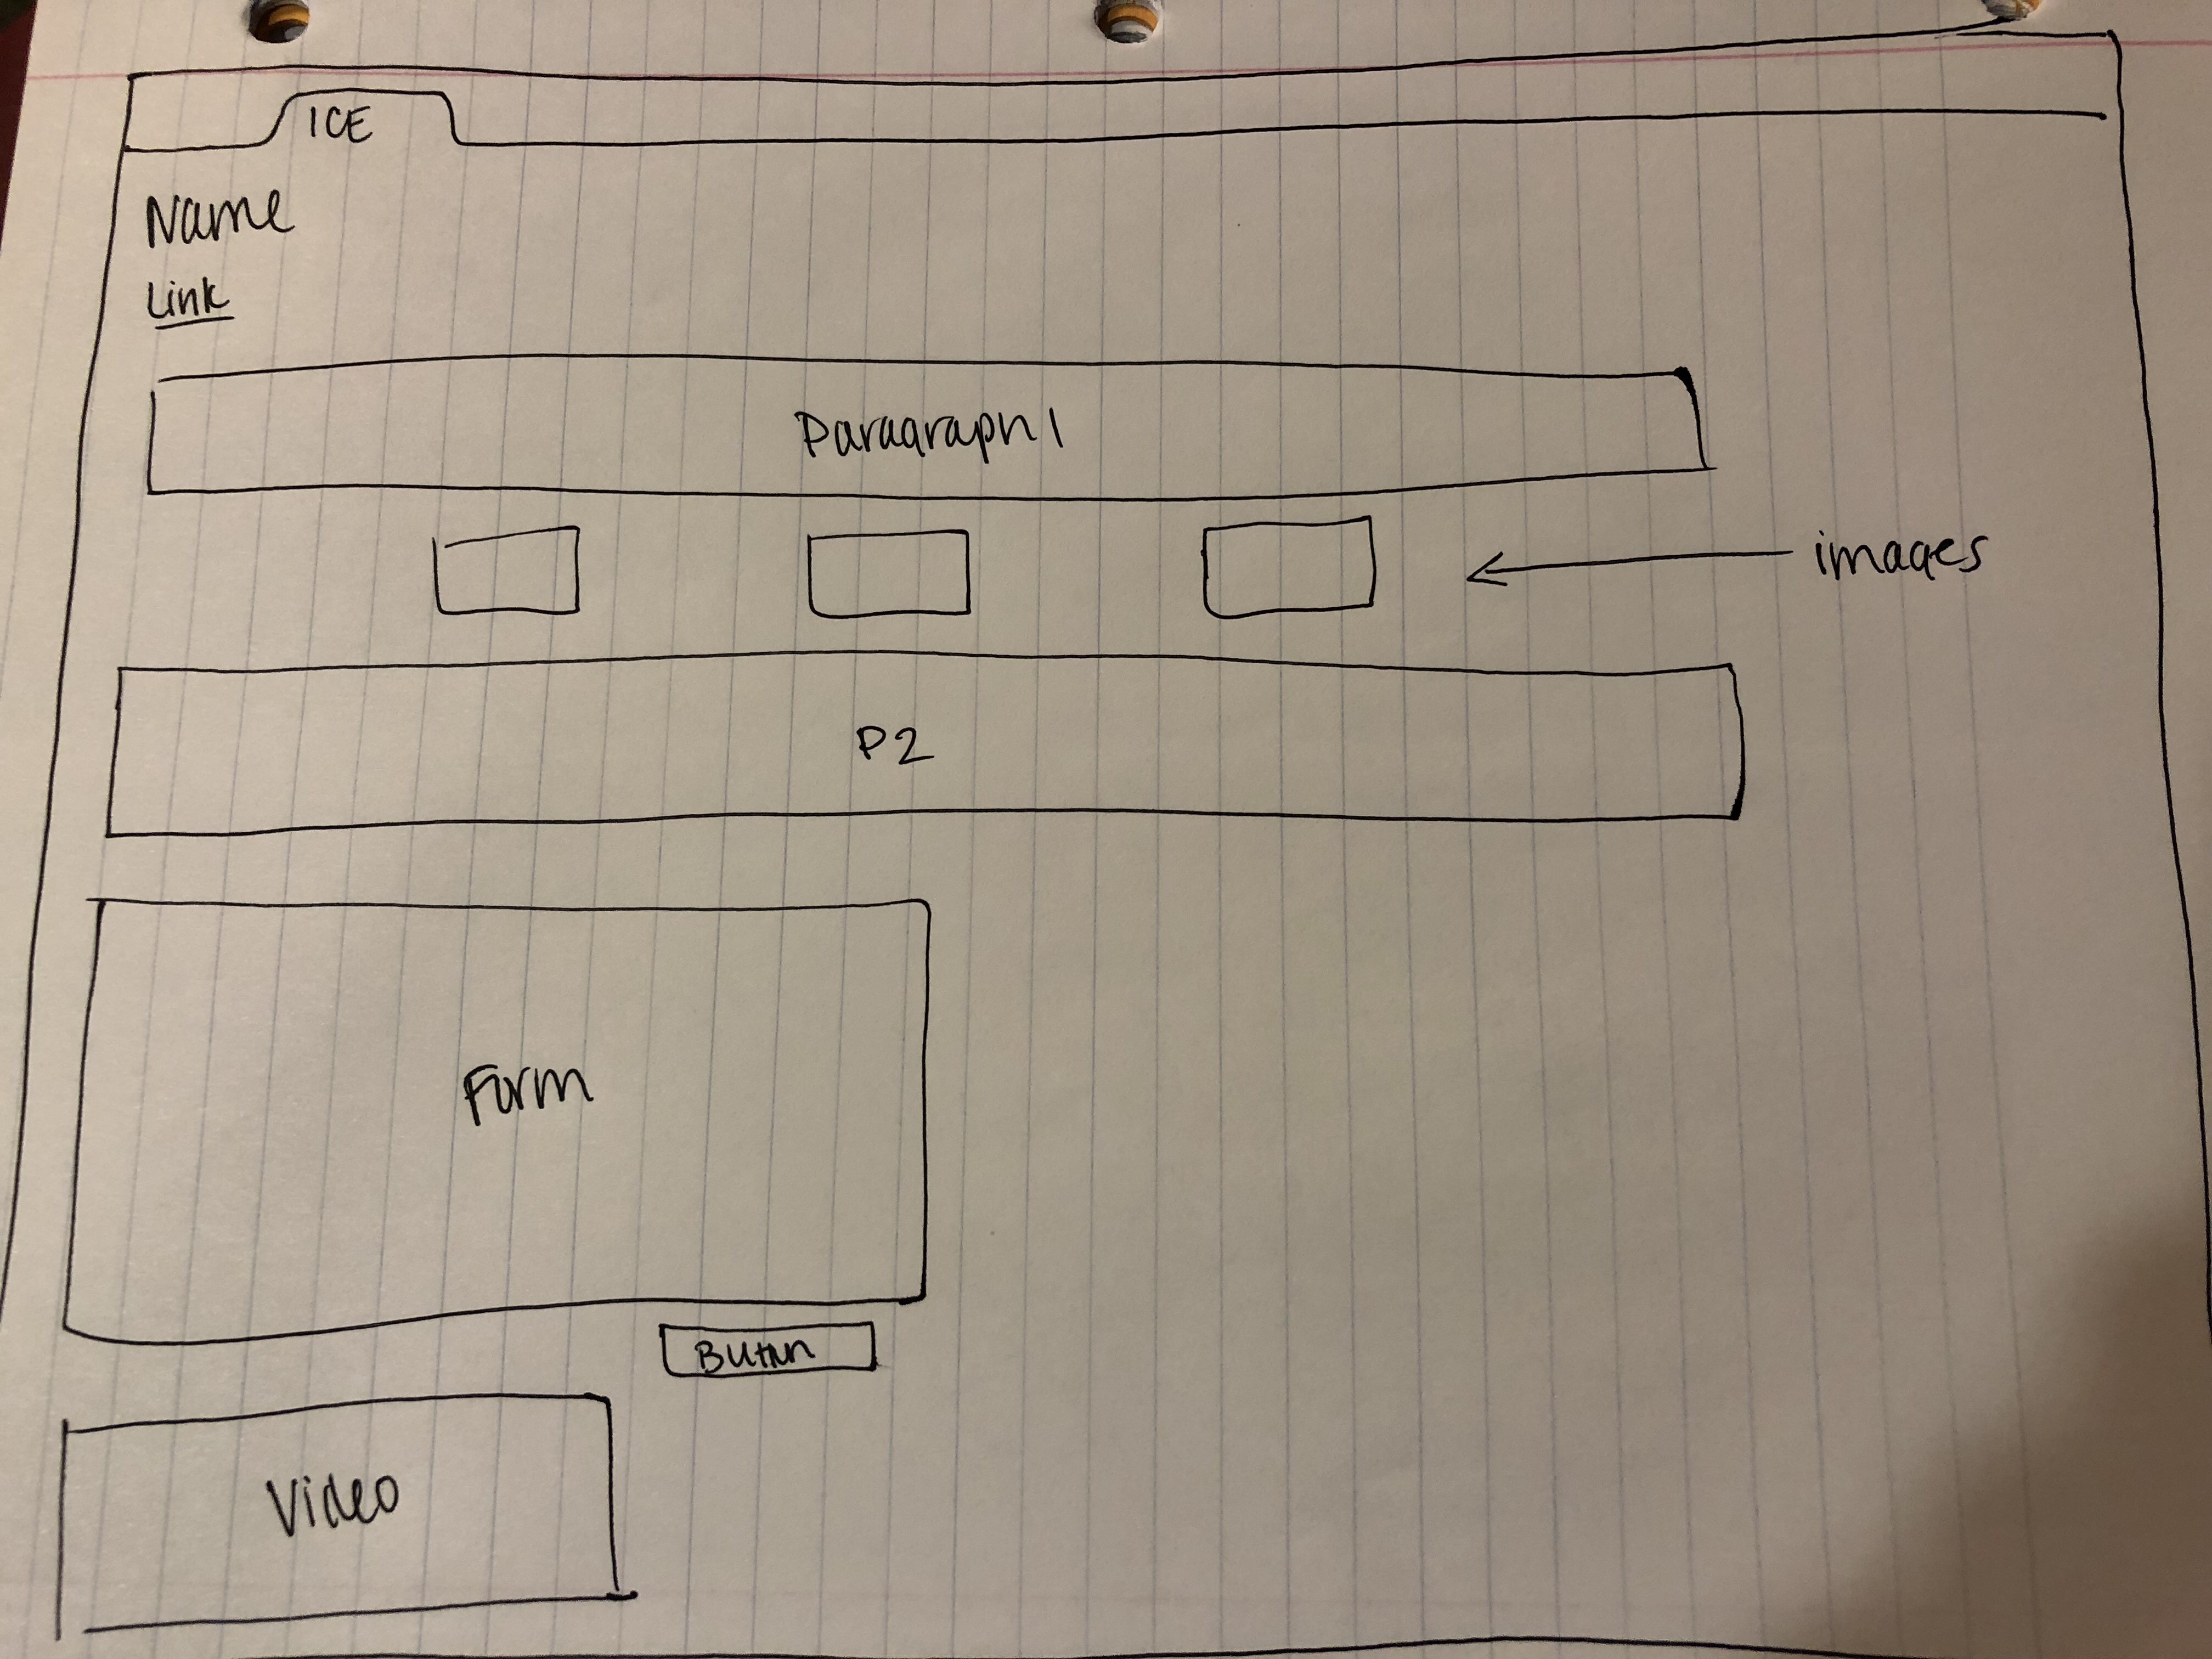 ICE
Name
Link
Paragraph 1
images
P2
Form
Button
Video